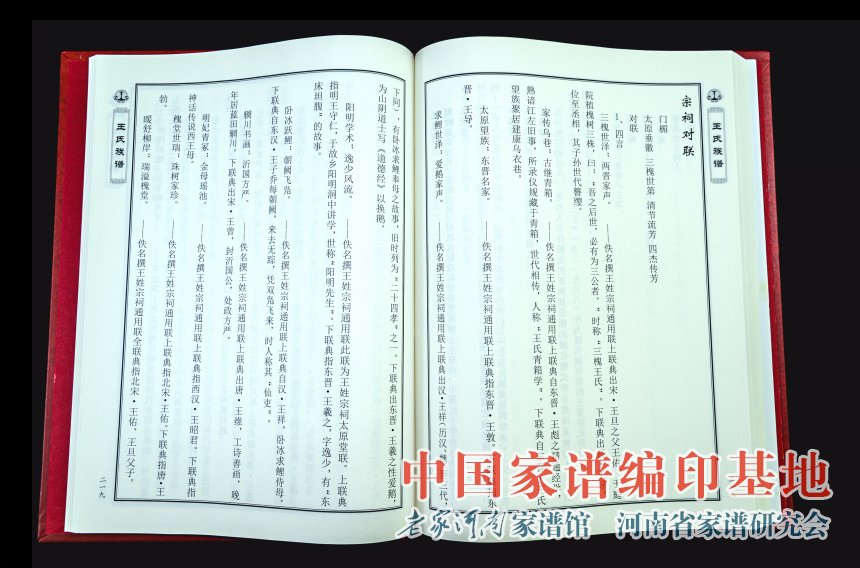 王氏族谱
宗祠对联
门楣
太原垂徽 三槐世第 清节流芳 四杰传芳
对联
1、四言
三槐世泽；两晋家声。
——佚名撰王姓宗祠通用联上联典出宋·王旦之父王佑
院植槐树三株，曰：“吾之后世，必有为三公者。”时称“三槐王氏”。下联典出
位至丞相，其子孙世代簪缨。
家传乌巷；古继青箱。
——佚名撰王姓宗祠通用联上联典自东晋·王彪之
熟谙江左旧事，所录仪规藏于青箱，世代相传，人称“王氏青箱学”。下联典自
望族聚居建康乌衣巷。
太原望族；东晋名家。
——佚名撰王姓宗祠通用联上联典指东晋·王敦。
晋·王导。
求鲤世泽；爱鹅家声。
——佚名撰王姓宗祠通用联上联典出汉·王祥（历汉、
下同），有卧冰求鲤奉母之故事，旧时列为“二十四孝”之一。下联典出东晋·王羲之性爱鹅，
为山阴道士写《道德经》以换鹅。
阳明学术；逸少风流。
——佚名撰王姓宗祠通用联此联为王姓宗祠太原堂联。上联典
指明王守仁，于故乡阳明洞中讲学，世称“阳明先生”。下联典指东晋·王羲之，字逸少，有“东
床坦腹”的故事。
卧冰跃鲤；朝阙飞凫。
——佚名撰王姓宗祠通用联上联典自汉·王祥，卧冰求鲤侍母。
下联典自东汉·王子乔每朝阙，来去无踪，凭双凫飞来，时人称其“仙吏”。
辋川书画；沂国方严。
——佚名撰王姓宗祠通用联上联典出唐·王维，工诗善画，晚
年居蓝田辋川。下联典出宋·王曾，封沂国公，处政方严。
明妃青冢；金母瑶池。
——佚名撰王姓宗祠通用联上联典指西汉·王昭君。下联典指
神话传说西王母。
槐堂世瑞；珠树家珍。
——佚名撰王姓宗祠通用联上联典指北宋·王佑。下联典指唐·王
勃。
暖舒柳岸；瑞溢槐堂。
——佚名撰王姓宗祠通用联全联典指北宋·王佑、王旦父子。
王氏族谱
二一九
中国家谱编印基地
老家河南家谱馆 河南省家谱研究会